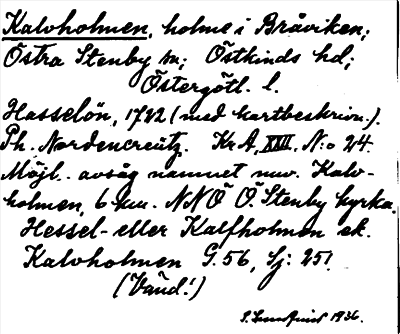 Kalvholmen, holme i Bråviken;
Östra Stenby sn; Östkinds hd;
Östergötl. l.
Hasselön, 1722 (med kartbeskrivn.).
Ph. Nordencreutz. Kr A, XXII, No 24.
Möjl. avsåg namnet nuv. Kalv-
holmen, 6 km. NNÖ Ö. Stenby kyrka.
Hessel- eller Kalfholmen ek.
Kalvholmen G. 56, Sj: 251
(Vänd!)
1936.